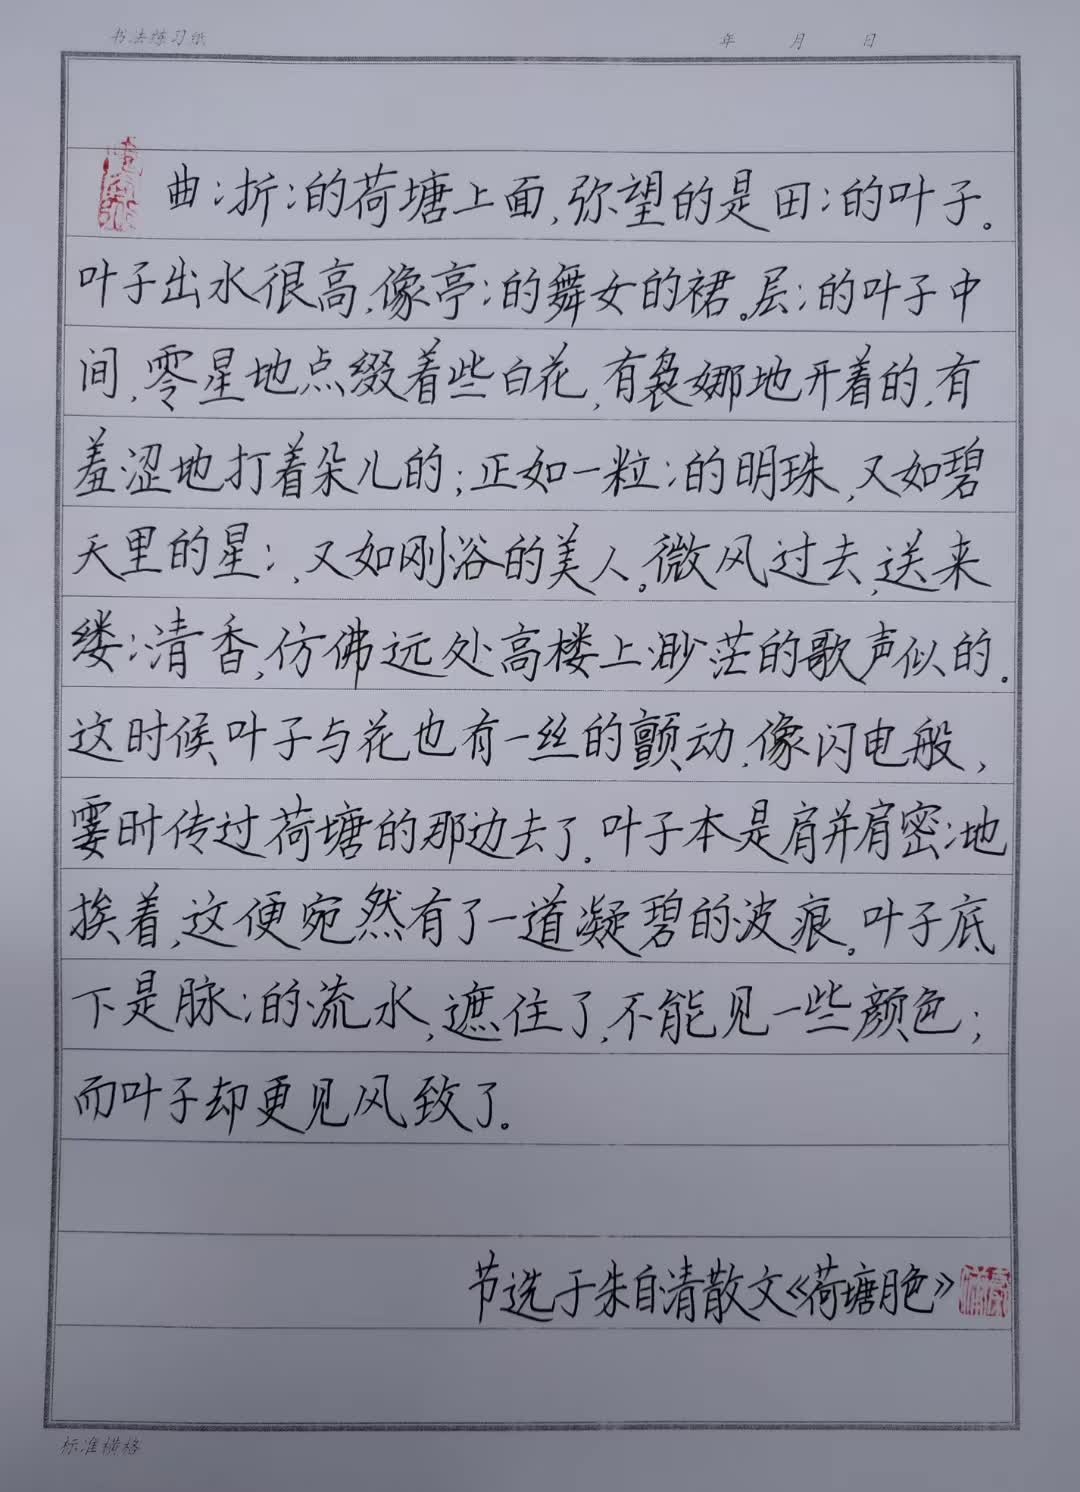 书法练习纸 年 月 日
曲:折:的荷塘上面,弥望的是田:的叶子。
叶子出水很高,像亭:的舞女的裙。层:的叶子中
间,零星地点缀着些白花,有袅娜地开着的,有
羞涩地打着朵儿的;正如一粒:的明珠,又如碧
天里的星:,又如刚浴的美人。微风过去,送来
缕:清香,仿佛远处高楼上渺茫的歌声似的。
这时候叶子与花也有一丝的颤动,像闪电般,
霎时传过荷塘的那边去了。叶子本是肩并肩密:地
挨着,这便宛然有了一道凝碧的波痕。叶子底
下是脉:的流水,遮住了,不能见一些颜色;
而叶子却更见风致了。
节选于朱自清散文《荷塘月色》
标准横格